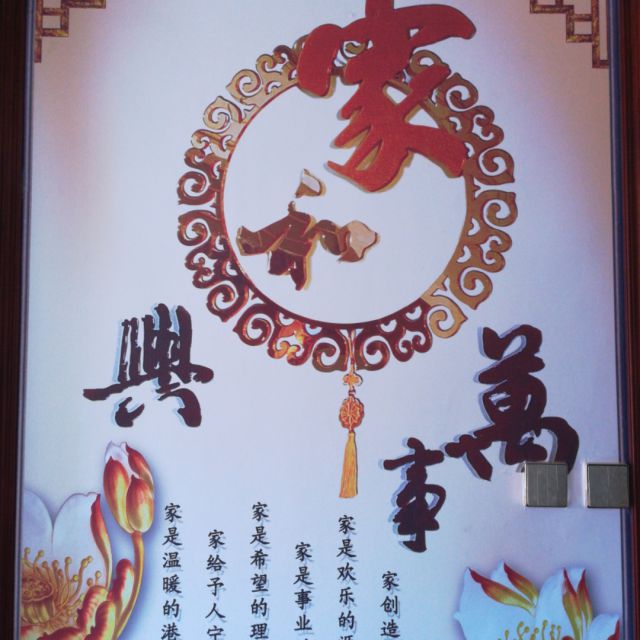 家
和
萬
事
興
家创造
家是欢乐的源
家是事业
家是希望的理
家给予人宁
家是温暖的港